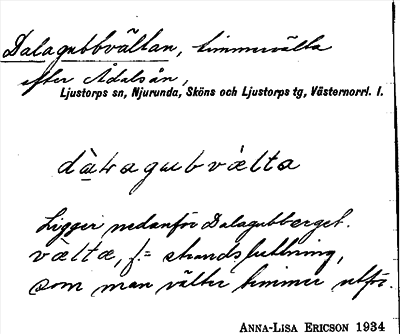 Dalagubbvältan, timmervälta
efter Ådalsån,
Ljustorps sn, Njurunda, Sköns och Ljustorps tg, Västernorrl. l.
dàlagubvälta
Ligger nedanför Dalagubberget.
vältæ, f. = strandsluttning,
som man välter timmer utför.
ANNA-LISA ERICSON 1934